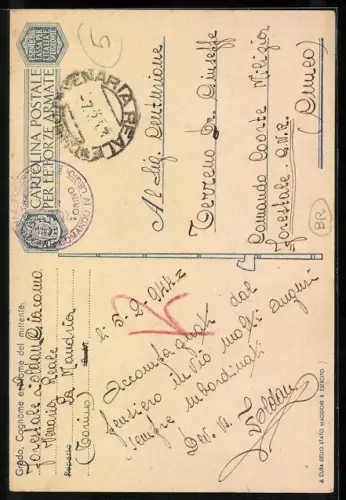 CARTOLINA POSTALE
PER LE FORZE ARMATE
VENARIA REALE
5
Al Sig. Centurione
Terreno Dr. Giuseppe
Comando Coorte Milizia
Forestale G.N.R.
(Cuneo)
BR
Grado, Cognome e Nome del mittente
Forestale Foldan Giacomo
Venaria Reale
La Mandria
(Torino)
li 5-2-944
Accompagnat dal
pensiero invio molti auguri
sempre subordinat
Dev.
Foldan
A CURA DELLO STATO MAGGIORE R. ESERCITO